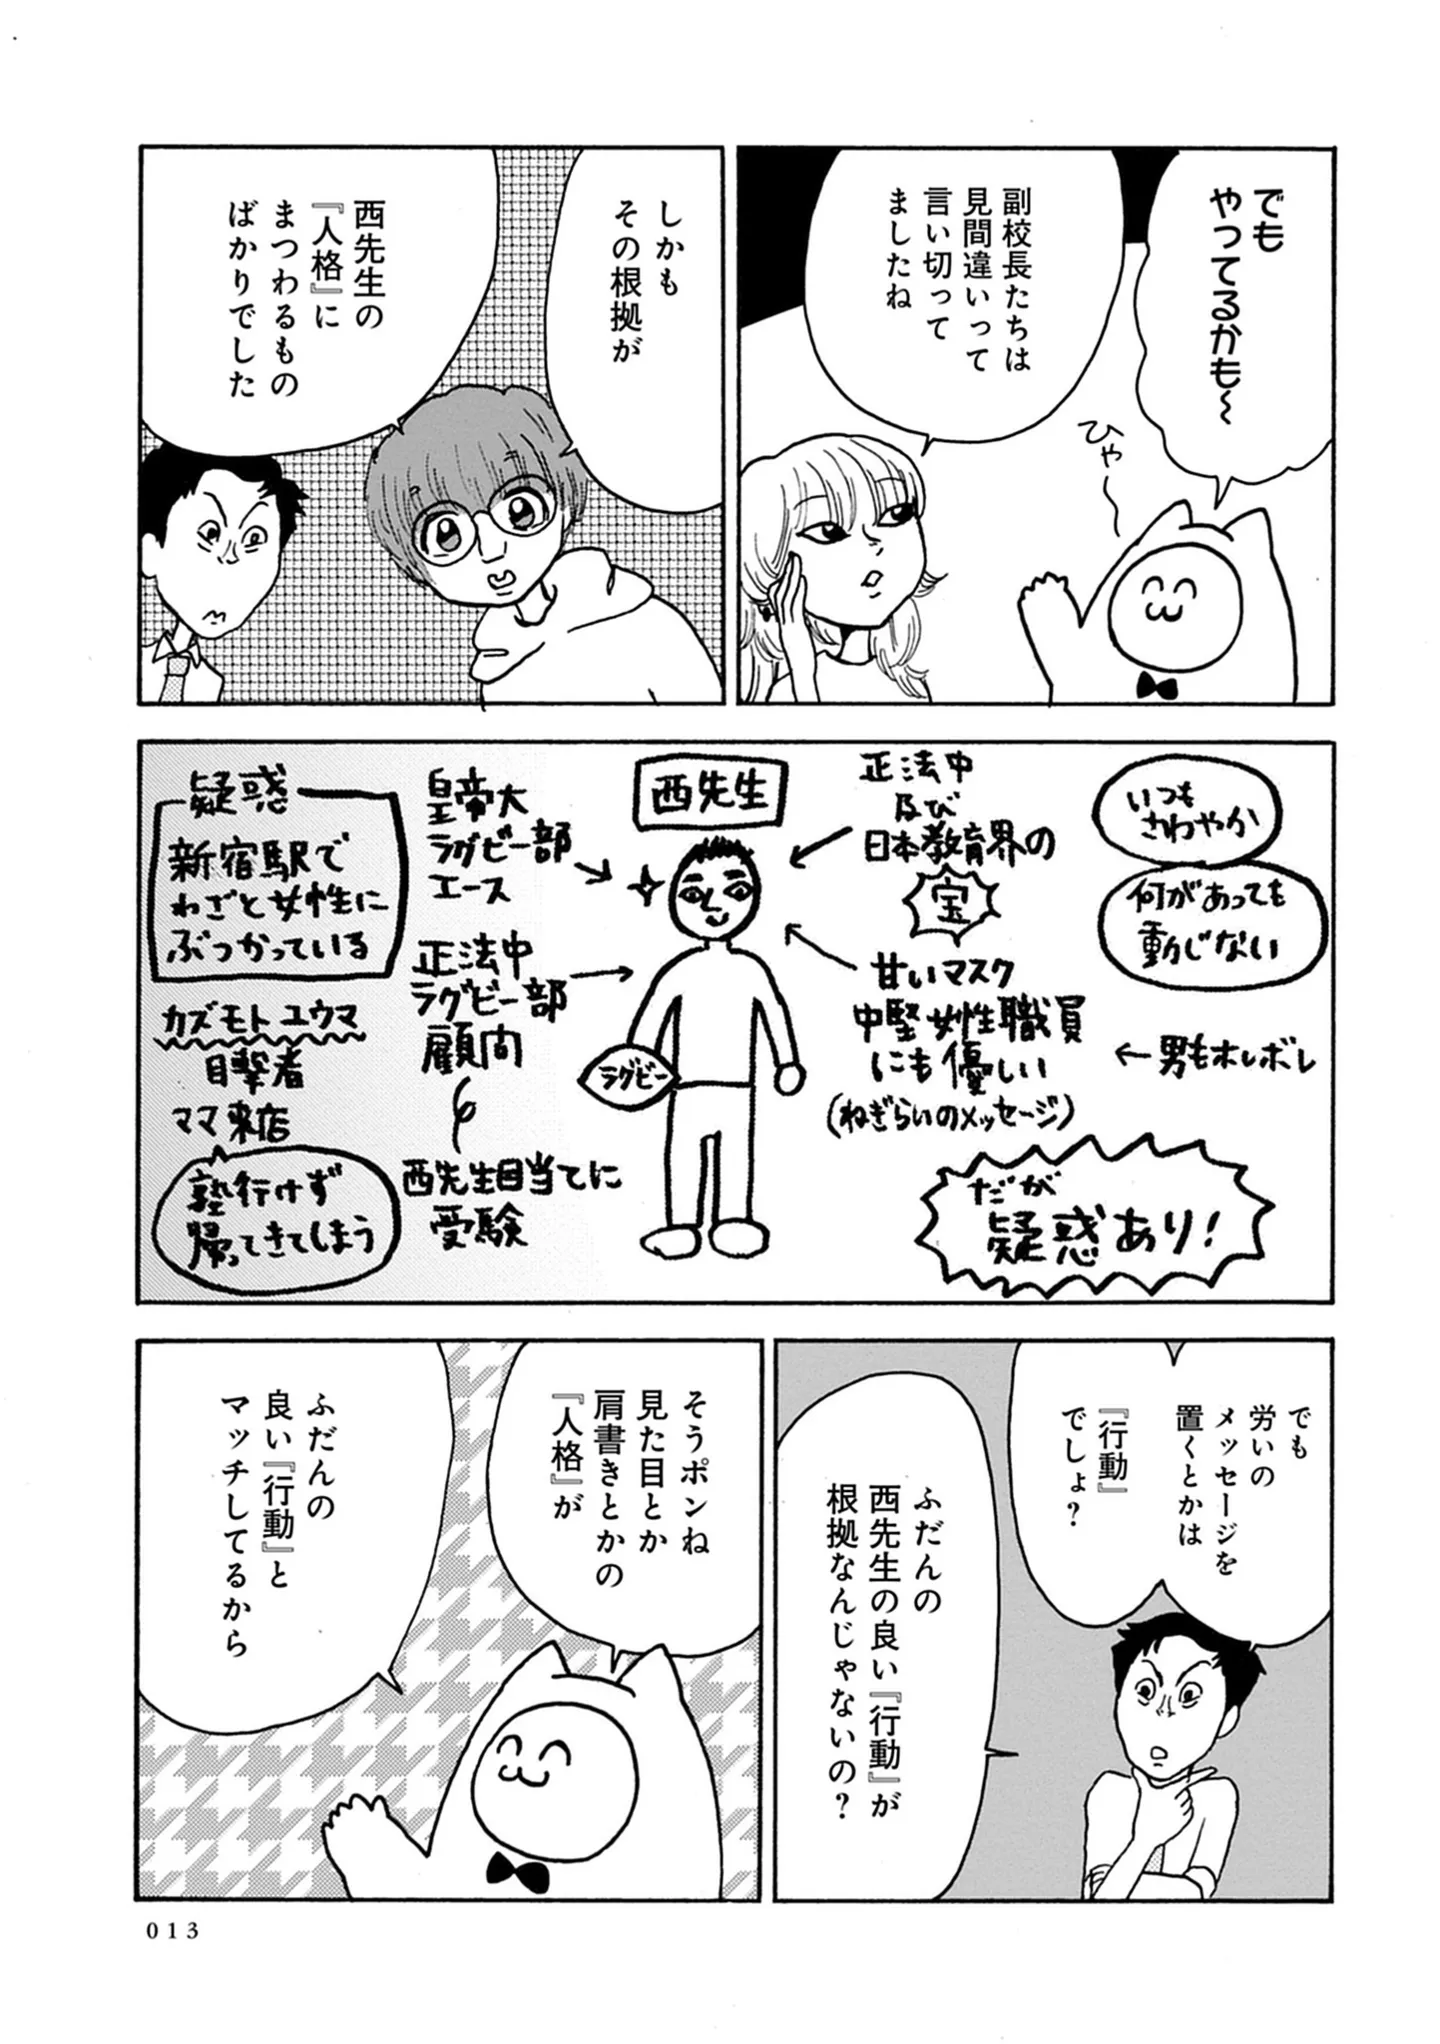 でも
やってるかも〜
ひゃ〜
副校長たちは
見間違いって
言い切って
ましたね
しかも
その根拠が
西先生の
『人格』に
まつわるもの
ばかりでした
いつも
さわやか
何があっても
動じない
←男もホレボレ
だが
疑惑あり!
正法中
及び
日本教育界の
宝
甘いマスク
中堅女性職員
にも優しい
(ねぎらいのメッセージ)
西先生
ラグビー
皇帝大
ラグビー部
エース
正法中
ラグビー部
顧問
西先生目当てに
受験
疑惑
新宿駅で
わざと女性に
ぶつかっている
カズモトユウマ
目撃者
ママ来店
塾行けず
帰ってきてしまう
でも
労いの
メッセージを
置くとかは
『行動』
でしょ?
ふだんの
西先生の良い『行動』が
根拠なんじゃないの?
そうポンね
見た目とか
肩書きとかの
『人格』が
ふだんの
良い『行動』と
マッチしてるから
013